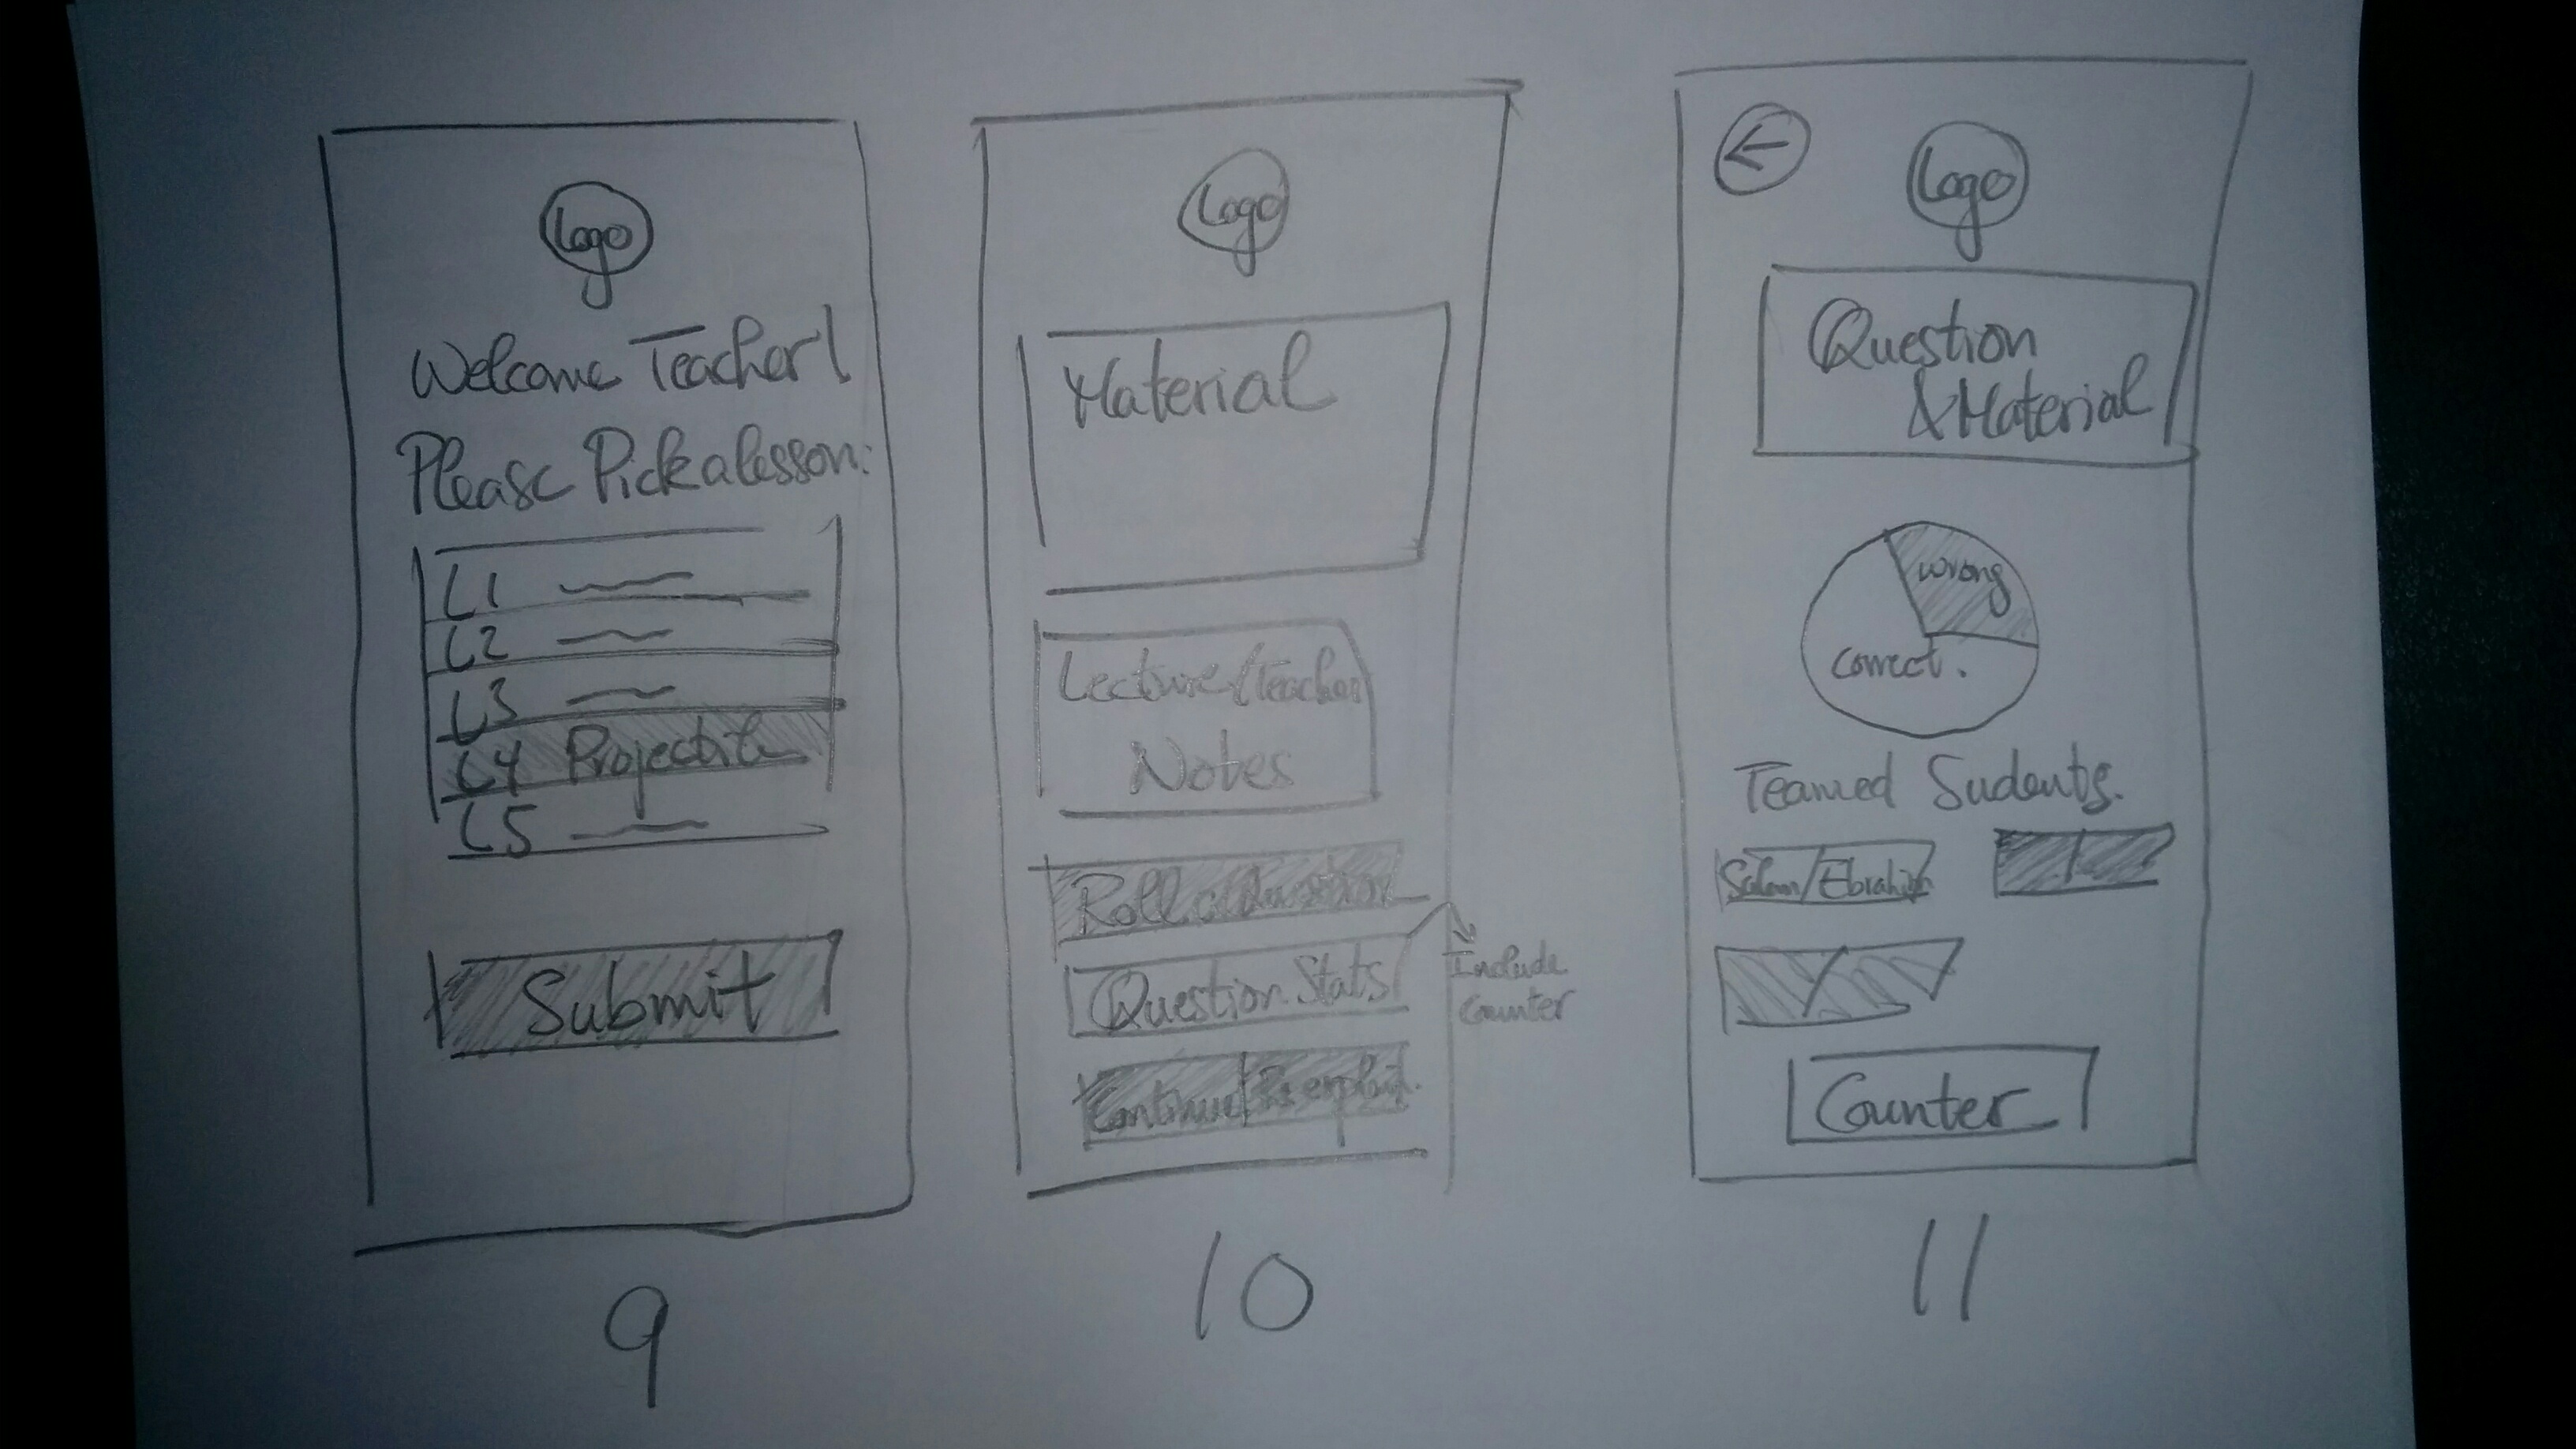 Logo
Welcome Teacher!
Please Pick a lesson:
L1
L2
L3
L4 Projectile
L5
Submit
9
Logo
Material
Lecture/Teacher
Notes
Roll a Question
Question Stats
Include
Counter
Continue/Re explain.
10
Logo
Question
& Material
wrong
correct.
Teamed Sudents.
Salem/Ebrahim
Counter
11